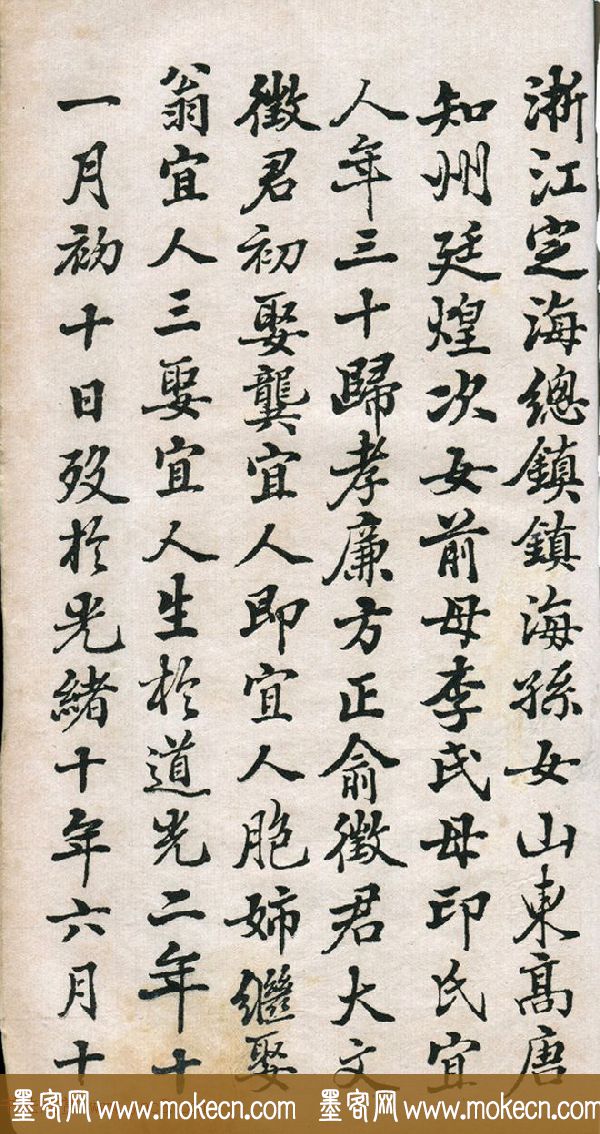 浙江定海總鎮鎮海孫女山東高唐
知州廷煌次女前母李氏母印氏宜
人年三十歸孝廉方正俞徵君大文
徵君初娶龔宜人即宜人胞姊繼娶
翁宜人三娶宜人生於道光二年十
一月初十日歿於光緒十年六月十
墨客网 www.mokecn.com 墨客网 www.mokecn.com